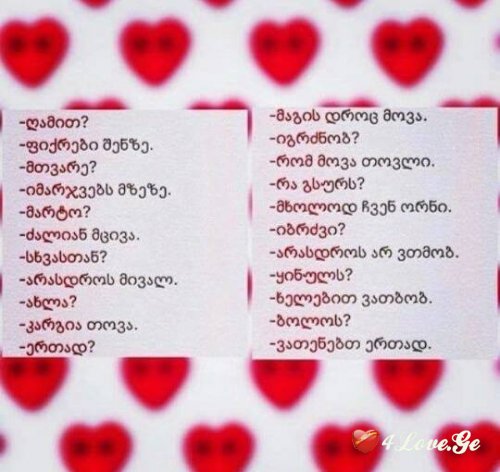 -ღამით?
-ფიქრები შენზე.
-მთვარე?
-იმარჯვებს მზეზე.
-მარტო?
-ძალიან მცივა.
-სხვასთან?
-არასდროს მივალ.
-ახლა?
-კარგია თოვა.
-ერთად?
-მაგის დროც მოვა.
-იგრძნობ?
-რომ მოვა თოვლი.
-რა გსურს?
-მხოლოდ ჩვენ ორნი.
-იბრძვი?
-არასდროს არ ვთმობ.
-ყინულს?
-ხელებით ვათბობ.
-ბოლოს?
-ვათენებთ ერთად.
4Love.Ge